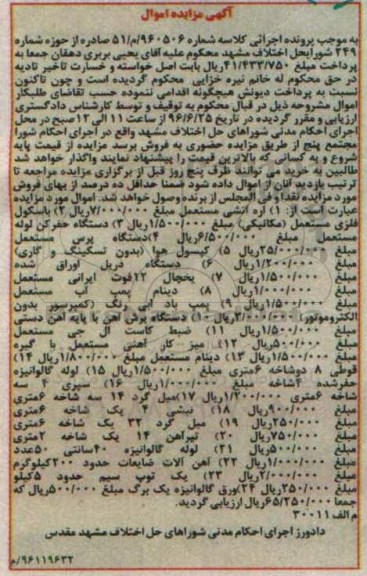 آگهی مزایده اموال
به موجب پرونده اجرائی کلاسه شماره ۹۶۰۵۰۶/م/۵۱ صادره از حوزه شماره
۲۴۹ شورایحل اختلاف مشهد محکوم علیه آقای یحیی بربری دهقان جمعا به
پرداخت مبلغ ۴۱/۴۳۳/۷۵۰ریال بابت اصل خواسته و خسارت تاخیر تادیه
در حق محکوم له خانم نیره خزایی محکوم گردیده است و چون تاکنون
نسبت به پرداخت دیونش هیچگونه اقدامی ننموده حسب تقاضای طلبکار
اموال مشروحه ذیل در قبال محکوم به توقیف و توسط کارشناس دادگستری
ارزیابی و مقرر گردیده در تاریخ ۹۶/۶/۲۵ از ساعت ۱۱ الی ۱۲ صبح در محل
اجرای احکام مدنی شوراهای حل اختلاف مشهد واقع در اجرای احکام شورا
مجتمع پنج از طریق مزایده حضوری به فروش برسد مزایده از قیمت پایه
شروع و به کسانی که بالاترین قیمت را پیشنهاد نمایند واگذار خواهد شد
طالبین به خرید می توانند ظرف پنج روز قبل از برگزاری مزایده مراجعه تا
ترتیب بازدید آنان از اموال داده شود ضمنا حداقل ده درصد از بهای فروش
مورد مزایده نقدا و فی المجلس از برنده وصول خواهد شد: اموال مورد مزایده
عبارت است از: ۱) اره آتشی مستعمل مبلغ ۷/۰۰۰/۰۰۰ریال ۲) باسکول
فلزی مستعمل (مکانیکی) مبلغ ۱/۵۰۰/۰۰۰ریال ۳) دستگاه حفرکن لوله
مستعمل مبلغ ۶/۵۰۰/۰۰۰ریال ۴)دستگاه پرس مستعمل
مبلغ ۲۵/۰۰۰/۰۰۰ریال ۵) کپسول هوا (بدون تسکینگ و گاری)
مبلغ ۱/۲۰۰/۰۰۰ریال ۶) دستگاه دریل اوراق شده
مبلغ ۱/۵۰۰/۰۰۰ریال ۷) یخچال ۱۲فوت ایرانی مستعمل
مبلغ ۱/۰۰۰/۰۰۰ریال ۸) دینام پمپ آب مستعمل
مبلغ ۱/۵۰۰/۰۰۰ریال ۹) پمپ باد آبی رنگ (کمپرسور بدون
الکتروموتور) ۲/۰۰۰/۰۰۰ریال ۱۰) دستگاه برش آهن با پایه آهن دستی
مبلغ ۱/۵۰۰/۰۰۰ریال ۱۱) ضبط کاست ال جی مستعمل
مبلغ ۵۰۰/۰۰۰ریال ۱۲) میز کار آهنی مستعمل با گیره
مبلغ ۱/۵۰۰/۰۰۰ریال ۱۳) دینام مستعمل مبلغ ۱/۸۰۰/۰۰۰ریال ۱۴)
قوطی ۸ دوشاخه ۶متری مبلغ ۱/۵۰۰/۰۰۰ریال ۱۵) لوله گالوانیزه
حفرشده ۴شاخه مبلغ ۱/۰۰۰/۰۰۰ریال ۱۶) سپری ۴ سه
شاخه ۶متری ۱/۲۰۰/۰۰۰ریال ۱۷)میل گرد ۱۴ سه شاخه ۶متری
مبلغ ۹۰۰/۰۰۰ریال ۱۸) نبشی ۴ یک شاخه ۶متری
مبلغ ۲۵۰/۰۰۰ریال ۱۹) میل گرد ۳۲ یک شاخه ۶متری
مبلغ ۷۵۰/۰۰۰ریال ۲۰) تیرآهن ۱۴ یک شاخه ۲متری
مبلغ ۵۰۰/۰۰۰ریال ۲۱) لوله گالوانیزه ۴۰سانتی ۵۰عدد
مبلغ ۱/۰۰۰/۰۰۰ریال ۲۲) آهن آلات ضایعات حدود ۲۰۰کیلوگرم
مبلغ ۲/۰۰۰/۰۰۰ریال ۲۳) یک توپ سیم حدود ۵کیلو
مبلغ ۲۵۰/۰۰۰ریال ۲۴)ورق گالوانیزه یک برگ مبلغ ۵۰۰/۰۰۰ریال که
جمعا ۶۵/۲۵۰/۰۰۰ریال ارزیابی گردید.
م الف ۳۰۰۱۱
دادورز اجرای احکام مدنی شوراهای حل اختلاف مشهد مقدس
۹۶۱۱۹۶۳۲/م